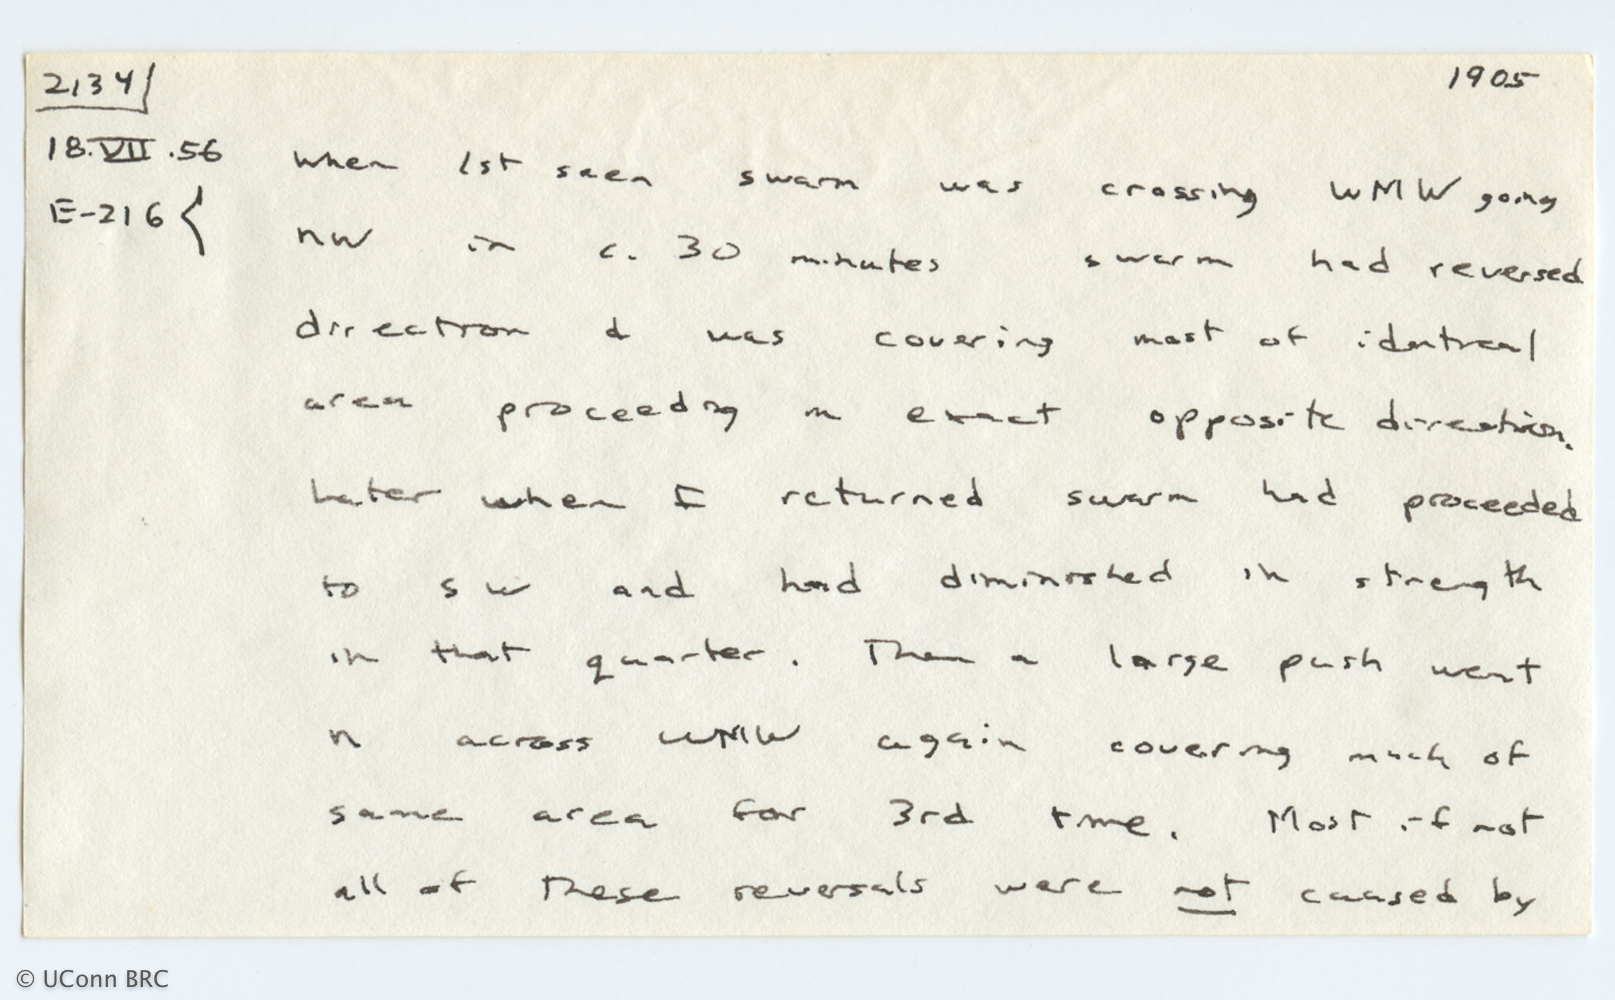 2134
1905
18.VII.56
E-216
When 1st seen swarm was crossing WMW going
NW in c. 30 minutes swarm had reversed
direction & was covering most of identical
area proceeding in exact opposite direction.
Later when I returned swarm had proceeded
to SW and had diminished in strength
in that quarter. Then a large push went
N across WMW again covering much of
same area for 3rd time. Most if not
all of these reversals were not caused by
© UConn BRC